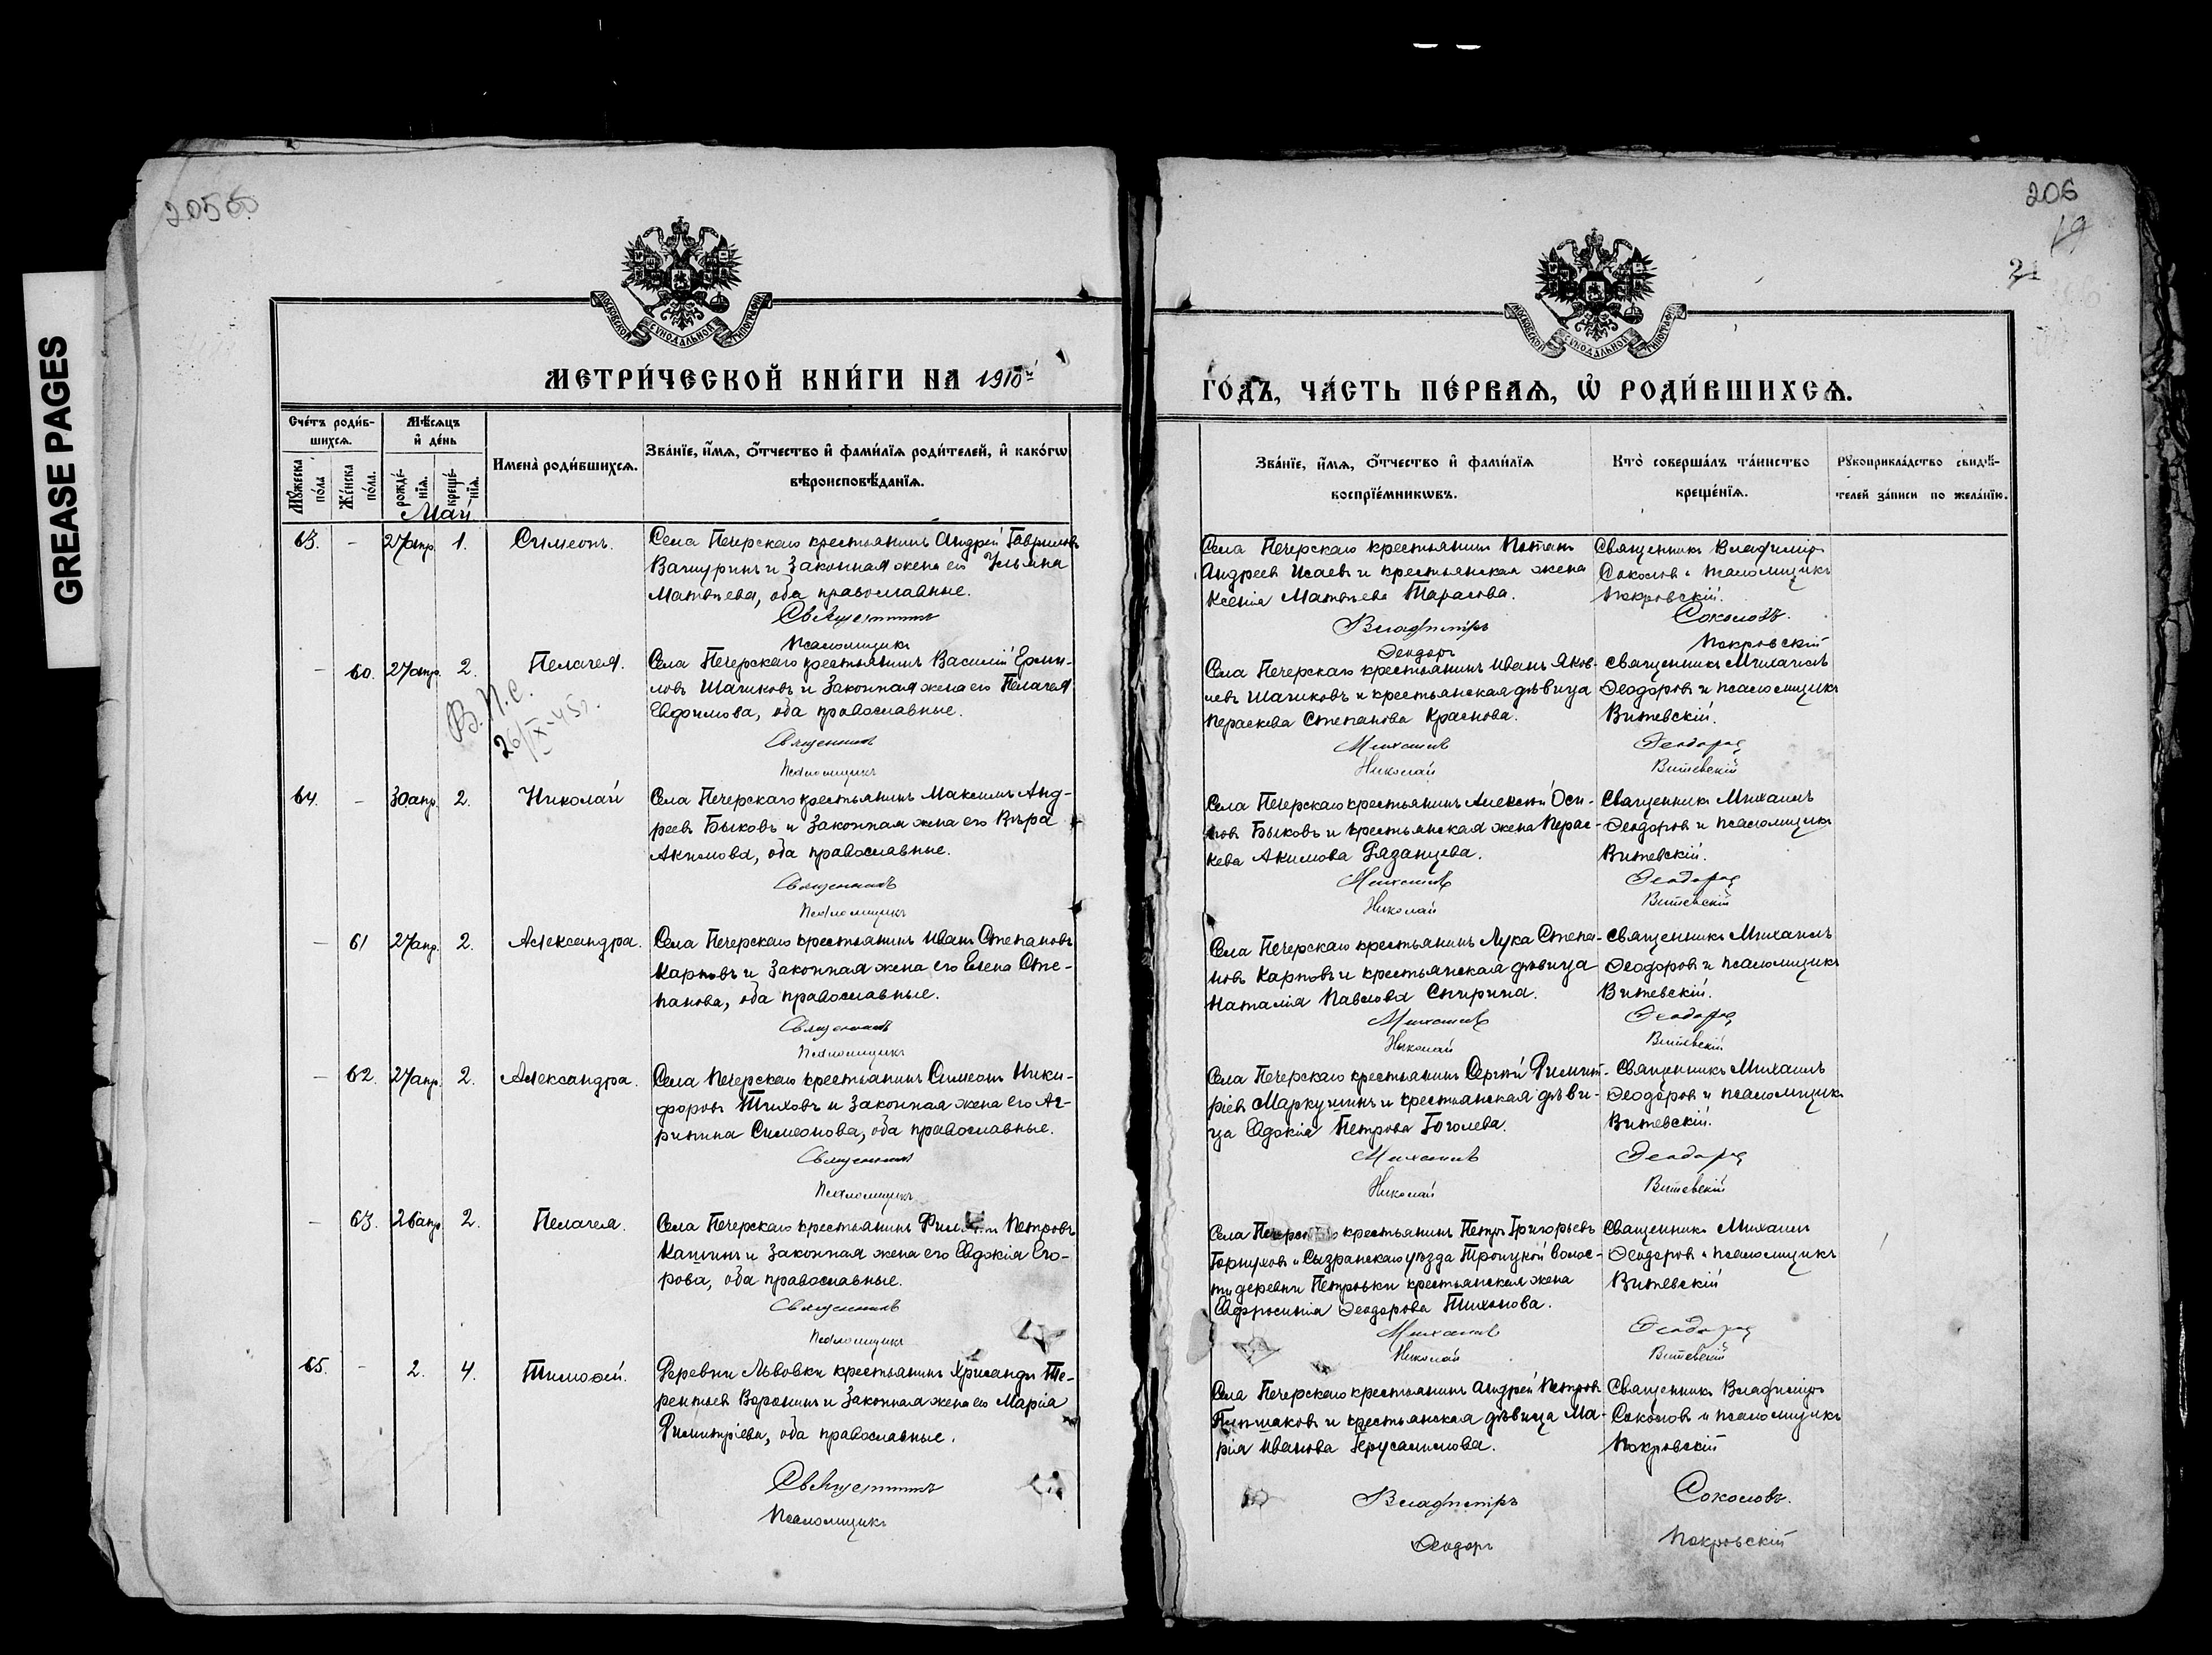 GREASE PAGES
206
19
МОСКОВСКОЙ СѴНОДАЛЬНОЙ ТИПОГРАФІИ
МОСКОВСКОЙ СѴНОДАЛЬНОЙ ТИПОГРАФІИ
МЕТРИ́ЧЕСКОЙ КНИ́ГИ НА 1910й
ГО́ДЪ, ЧА́СТЬ ПЕ́РВАѦ, Ѡ҆ РОДИ́ВШИХСѦ.
Сче́тъ роди́в-
шихсѧ.
Мꙋ́жеска по́ла
Же́нска по́ла.
Мѣ́сѧцъ
и҆ де́нь
рожде́нїѧ.
креще́нїѧ.
Имена̀ роди́вшихсѧ.
Зва́нїе, и҆́мѧ, ѻ҆́тчество и҆ фами́лїѧ роди́телей, и҆ како́гѡ
вѣроисповѣ́данїѧ.
Зва́нїе, и҆́мѧ, ѻ҆́тчество и҆ фами́лїѧ
воспрїе́мникѡвъ.
Кто̀ соверша́лъ та́инство
креще́нїѧ.
Рꙋкоприкла́дство свидѣ́-
телей за́писи по жела́нїю.
Май
63. - 27апр. 1. Симеонъ.
Села Печерскаго крестьянинъ Андрей Гавриловъ
Вашуринъ и законная жена его Ульяна
Матвѣева, оба православные.
Священникъ
Псаломщикъ
Села Печерскаго крестьянинъ Потапъ
Андреевъ Исаевъ и крестьянская жена
Ксенія Матвѣева Тарасова.
Владиміръ
Ѳеодоръ
Священникъ Владиміръ
Соколовъ и псаломщикъ
Покровскій.
Соколовъ.
Покровскій
- 60. 27апр. 2. Пелагея.
В.п.с.
26/IX-45г.
Села Печерскаго крестьянинъ Василій Ерми-
ловъ Шагиковъ и законная жена его Пелагея
Евфимова, оба православные.
Священникъ
Псаломщикъ
Села Печерскаго крестьянинъ Иванъ Яков-
левъ Шагиковъ и крестьянская дѣвица
Параскева Степанова Краснова.
Михаилъ
Николай
Священникъ Михаилъ
Ѳеодоровъ и псаломщикъ
Витевскій.
Ѳеодоровъ
Витевскій
64. - 30апр. 2. Николай
Села Печерскаго крестьянинъ Максимъ Анд-
реевъ Быковъ и законная жена его Вѣра
Акимова, оба православные.
Священникъ
Псаломщикъ
Села Печерскаго крестьянинъ Алексѣй Оси-
повъ Быковъ и крестьянская жена Парас-
кева Акимова Рязанцева.
Михаилъ
Николай
Священникъ Михаилъ
Ѳеодоровъ и псаломщикъ
Витевскій.
Ѳеодоровъ
Витевскій
- 61 27апр. 2. Александра.
Села Печерскаго крестьянинъ Иванъ Степановъ
Карповъ и законная жена его Елена Сте-
панова, оба православные.
Священникъ
Псаломщикъ
Села Печерскаго крестьянинъ Лука Степа-
новъ Карповъ и крестьянская дѣвица
Наталія Павлова Спирина.
Михаилъ
Николай
Священникъ Михаилъ
Ѳеодоровъ и псаломщикъ
Витевскій.
Ѳеодоровъ
Витевскій
- 62. 27апр. 2. Александра.
Села Печерскаго крестьянинъ Симеонъ Ники-
форовъ Тиховъ и законная жена его Аг-
рипина Симеонова, оба православные.
Священникъ
Псаломщикъ
Села Печерскаго крестьянинъ Сергѣй Димит-
ріевъ Маркушинъ и крестьянская дѣви-
ца Евдокія Петрова Гоголева.
Михаилъ
Николай
Священникъ Михаилъ
Ѳеодоровъ и псаломщикъ
Витевскій.
Ѳеодоровъ
Витевскій
- 63. 26апр. 2. Пелагея.
Села Печерскаго крестьянинъ Филиппъ Петровъ
Кашинъ и законная жена его Евдокія Его-
рова, оба православные.
Священникъ
Псаломщикъ
Села Печерскаго крестьянинъ Петръ Григорьевъ
Горшуковъ и Сызранскаго уѣзда Троицкой волос-
ти деревни Петровки крестьянская жена
Евфросинія Ѳеодорова Тихонова.
Михаилъ
Николай
Священникъ Михаилъ
Ѳеодоровъ и псаломщикъ
Витевскій
Ѳеодоровъ
Витевскій
65. - 2. 4. Тимоѳей.
Деревни Львовки крестьянинъ Хрисанфъ Те-
рентьевъ Воронинъ и законная жена его Марія
Димитріева, оба православные.
Священникъ
Псаломщикъ
Села Печерскаго крестьянинъ Андрей Петровъ
и крестьянская дѣвица Ма-
рія Иванова Іерусалимова.
Владиміръ
Ѳеодоръ
Священникъ Владиміръ
Соколовъ и псаломщикъ
Покровскій
Соколовъ.
Покровскій